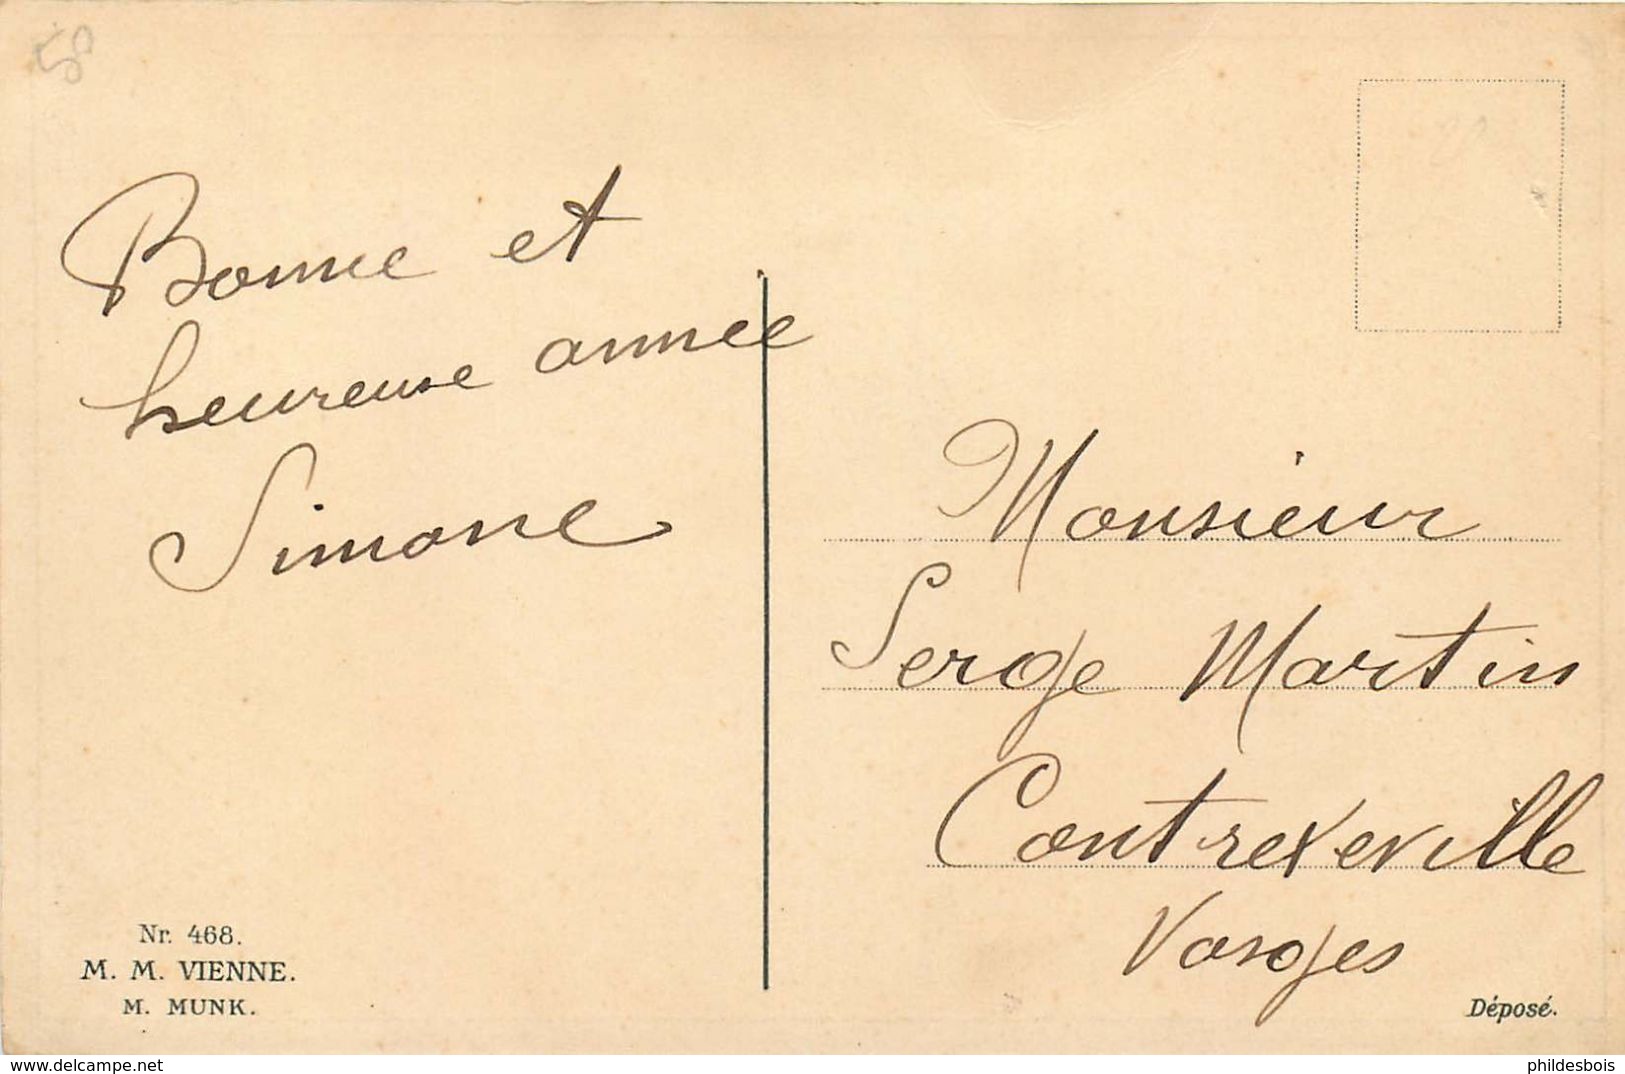 58
Bonne et
heureuse année
Simone
Monsieur
Serge Martin
Contrexeville
Vosges
Nr. 468.
M. M. VIENNE.
M. MUNK.
Déposé.
www.delcampe.net
phildesbois